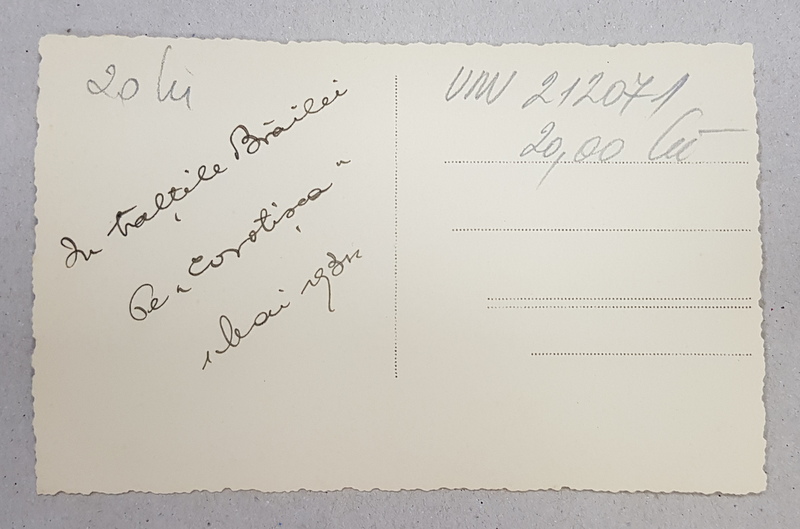 20 lei
In balțile Brăilei
Pe "Corotișca"
Mai 193
VNV 212071
20,00 lei